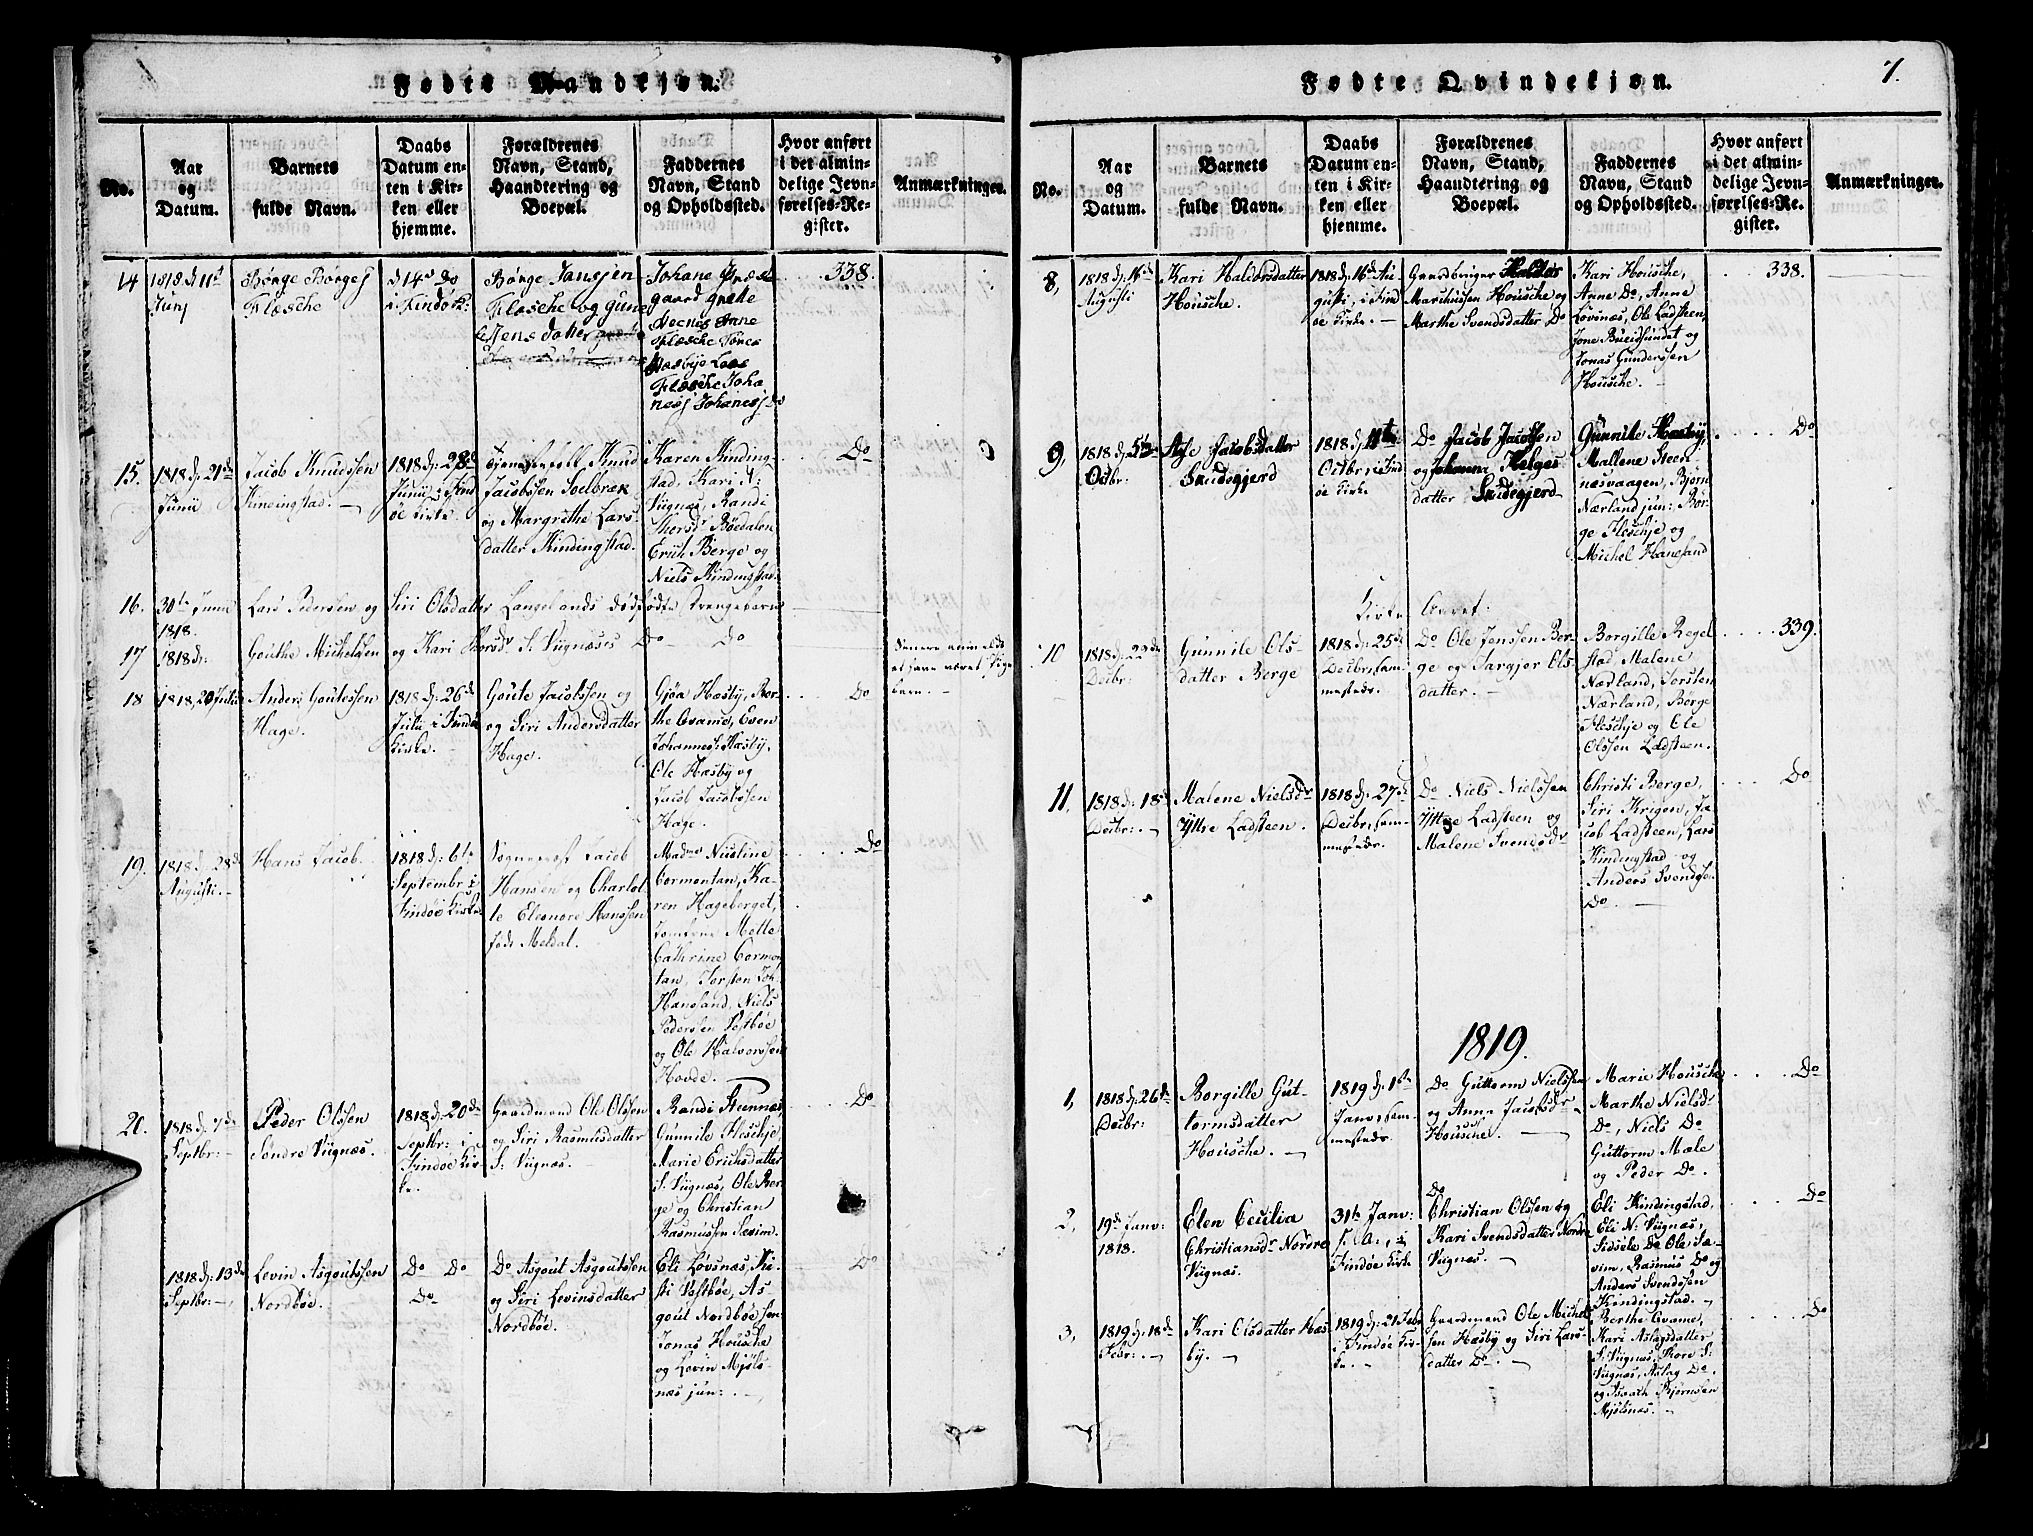 Fødte Mandkjøn.
No.
Aar
og
Datum.
Barnets
fulde Navn.
Daabs
Datum en-
ten i Kir-
ken eller
hjemme.
Forældrenes
Navn, Stand,
Haandtering og
Boepæl.
Faddernes
Navn, Stand
og Opholdssted.
Hvor anført
i det almin-
delige Jevn-
førelses-Re-
gister.
Anmærkninger.
14
1818 d 11te
Junj
Børge Børgesj
Flæsche
d 14de Do
i Findø K:
Børge Jansjen
Flæsche og Gune
Jens doter
Johane Præste
gaard grete
Steenes Anne
Flæsche Jones
Hæsbye Lars
Flæsche Joha
nesj Johanesj do
338.
15.
1818 d: 21de
Junii
Jacob Knudssen
Kindingstad.
1818 d: 28de
Junii i Find
øe Kirke.
Tjenestefolk Knud
Jacobssen Soelbræk
og Margrethe Lars-
datter Kindingstad.
Karen Kinding-
stad, Kari N:
Viignæs, Randi
Thorsdr Bøedalen
Erich Berge og
Niels Kindingstad.
Do
16.
30te Junii
1818.
Lars Pedersen og Siri Olsdatter Langelands dødfødte Drengebarn
17
1818 d:
Gouthe Michelssen og Kari Thorsdr S. Viignæses Do Do
Senere anmeldt
at have været Pige
barn.
18
1818, 20 Julii
Anders Goutessen
Hage.
1818 d: 26de
Julii i Findøe
Kirke.
Goute Jacobssen og
og Siri Andersdatter
Hage.
Gjøa Hæsby, Ber-
the Qvame, Even
Johanness. Hæsby,
Ole Hæsby og
Jacob Jacobssen
Hage.
Do
19.
1818 d: 28de
Augusti.
Hans Jacob.
1818 d: 6te
Septembr i
Findøe Kirke
Sognepræst Jacob
Hansen og Charlot-
te Eleonore Hanssen
født Meldal.
Madme Nicoline
Cormontan, Ka-
ren Hageberget,
Jomfrue Mette
Cathrine Cormon-
tan, Torsten Joh.
Hanesand, Niels
Pedersen Vestbøe
og Ole Halvorssen
Hovde.
Do
20.
1818 d: 7de
Septbr:
Peder Olssen
Søndre Viignæs.
1818 d: 20de
Septbr: i
Findøe Kir-
ke.
Gaardmand Ole Olssen
og Siri Rasmusdatter
S: Viignæs.
Randi Steennæs
Gunnile Fleschje
Marie Erichsdatter
S. Viignæs, Ole Ber-
ge og Christian
Rasmussen Sævim.
Do
1818 d: 13de
Septbr:
Levin Asgoutssen
Nordbøe.
Do Do
Do
Do Asgout Asgoutssen
og Siri Levinsdatter
Nordbøe.
Eli Løvsnæs, Ki-
sti Vestbøe, As-
gout Nordbøe sen.
Jonas Housche
og Levin Mjøls-
næs jun:
Do
7.
Fødte Qvindekjøn.
No.
Aar
og
Datum.
Barnets
fulde Navn.
Daabs
Datum en-
ten i Kir-
ken eller
hjemme.
Forældrenes
Navn, Stand,
Haandtering og
Boepæl.
Faddernes
Navn, Stand
og Opholdssted.
Hvor anført
i det almin-
delige Jevn-
førelses-Re-
gister.
Anmærkninger.
8,
1818 d: 16de
Augusti
Kari Haldorsdatter
Housche.
1818 d: 16de Au
gusti, i Find
øe Kirke.
Gaardbruger Haldor
Marchussen Housche og
Marthe Svendsdatter Do
Kari Housche,
Anne Do, Anne
Løvsnæs, Ole Ladsteen,
Jone Breidsundet og
Jonas Gunderssen
Housche.
338.
9,
1818 d: 5te
Octbr:
Ase Jacobsdatter
Skudegjerd
1818 d: 11te
Octbr, i Find
øe Kirke
Do Jacob Jacobsen
og Johanna Helges
datter Skudegjerd
Gunnile Hæsby,
Mallene Steen
næsvaagen, Bjørn
Nærland jun: Bør-
ge Fleschje og
Michel Hanesand
Do
Kirke Aaret.
10
1818 d: 22de
Decbr:
Gunnile Ols-
datter Berge
1818 d: 25de
Decbr, sam-
mestedr.
Do Ole Jenssen Ber-
ge og Targjer Ols-
datter.
Borgille Regel-
stad, Malene
Nærland, Torsten
Nærland, Børge
Fleschje og Ole
Olssen Ladsteen.
339.
11,
1818 d: 18de
Decbr:
Malene Nielsdr
Yttre Ladsteen.
1818 d: 27de
Decbr, sam-
mestedr.
Do Niels Nielssen
Yttre Ladsteen og
Malene Svensdr
Christi Berge,
Siri Krigen, Ja-
cob Ladsteen, Lars
Kindingstad og
Anders Svendse
Do.
Do
1819.
1,
1818 d: 26de
Decbr:
Borgille Gut-
tormsdatter
Housche.
1819 d: 1ste
Janv, sam-
mestedr.
Do Guttorm Nielssen
og Anna Jacobsdr
Housche.
Marie Housche
Marthe Nielsdr
Do, Niels Do
Guttorm Mæle
og Peder Do.
Do
2,
19de Janv:
1818.
Elen Cecilia
Christiansdr Nordre
Viignæs.
31te Janv:
s. a., i
Findøe Kirke
Do
Christian Olssen og
Kari Svendsdatter Nordre
Viignæs.
Eli Kindingstad,
Eli N: Viignæs,
Sidsele Do Ole Sæ-
vim, Rasmus Do og
Anders Svendssen
Kindingstad.
Do
3,
1819 d: 18de
Febr:
Kari Olsdatter Hæs-
by.
1819 d: 21 Febr
i Findøe Kir-
ke.
Gaardmand Ole Michel-
sen Hæsby og Siri Lars-
datter Do.
Berthe Qvame,
Kari Aslagsdatter
S: Viignæs, Thore S:
Viignæs, Aslag Do,
og Isaach Bjørnsen
Mjølsnæs.
Do